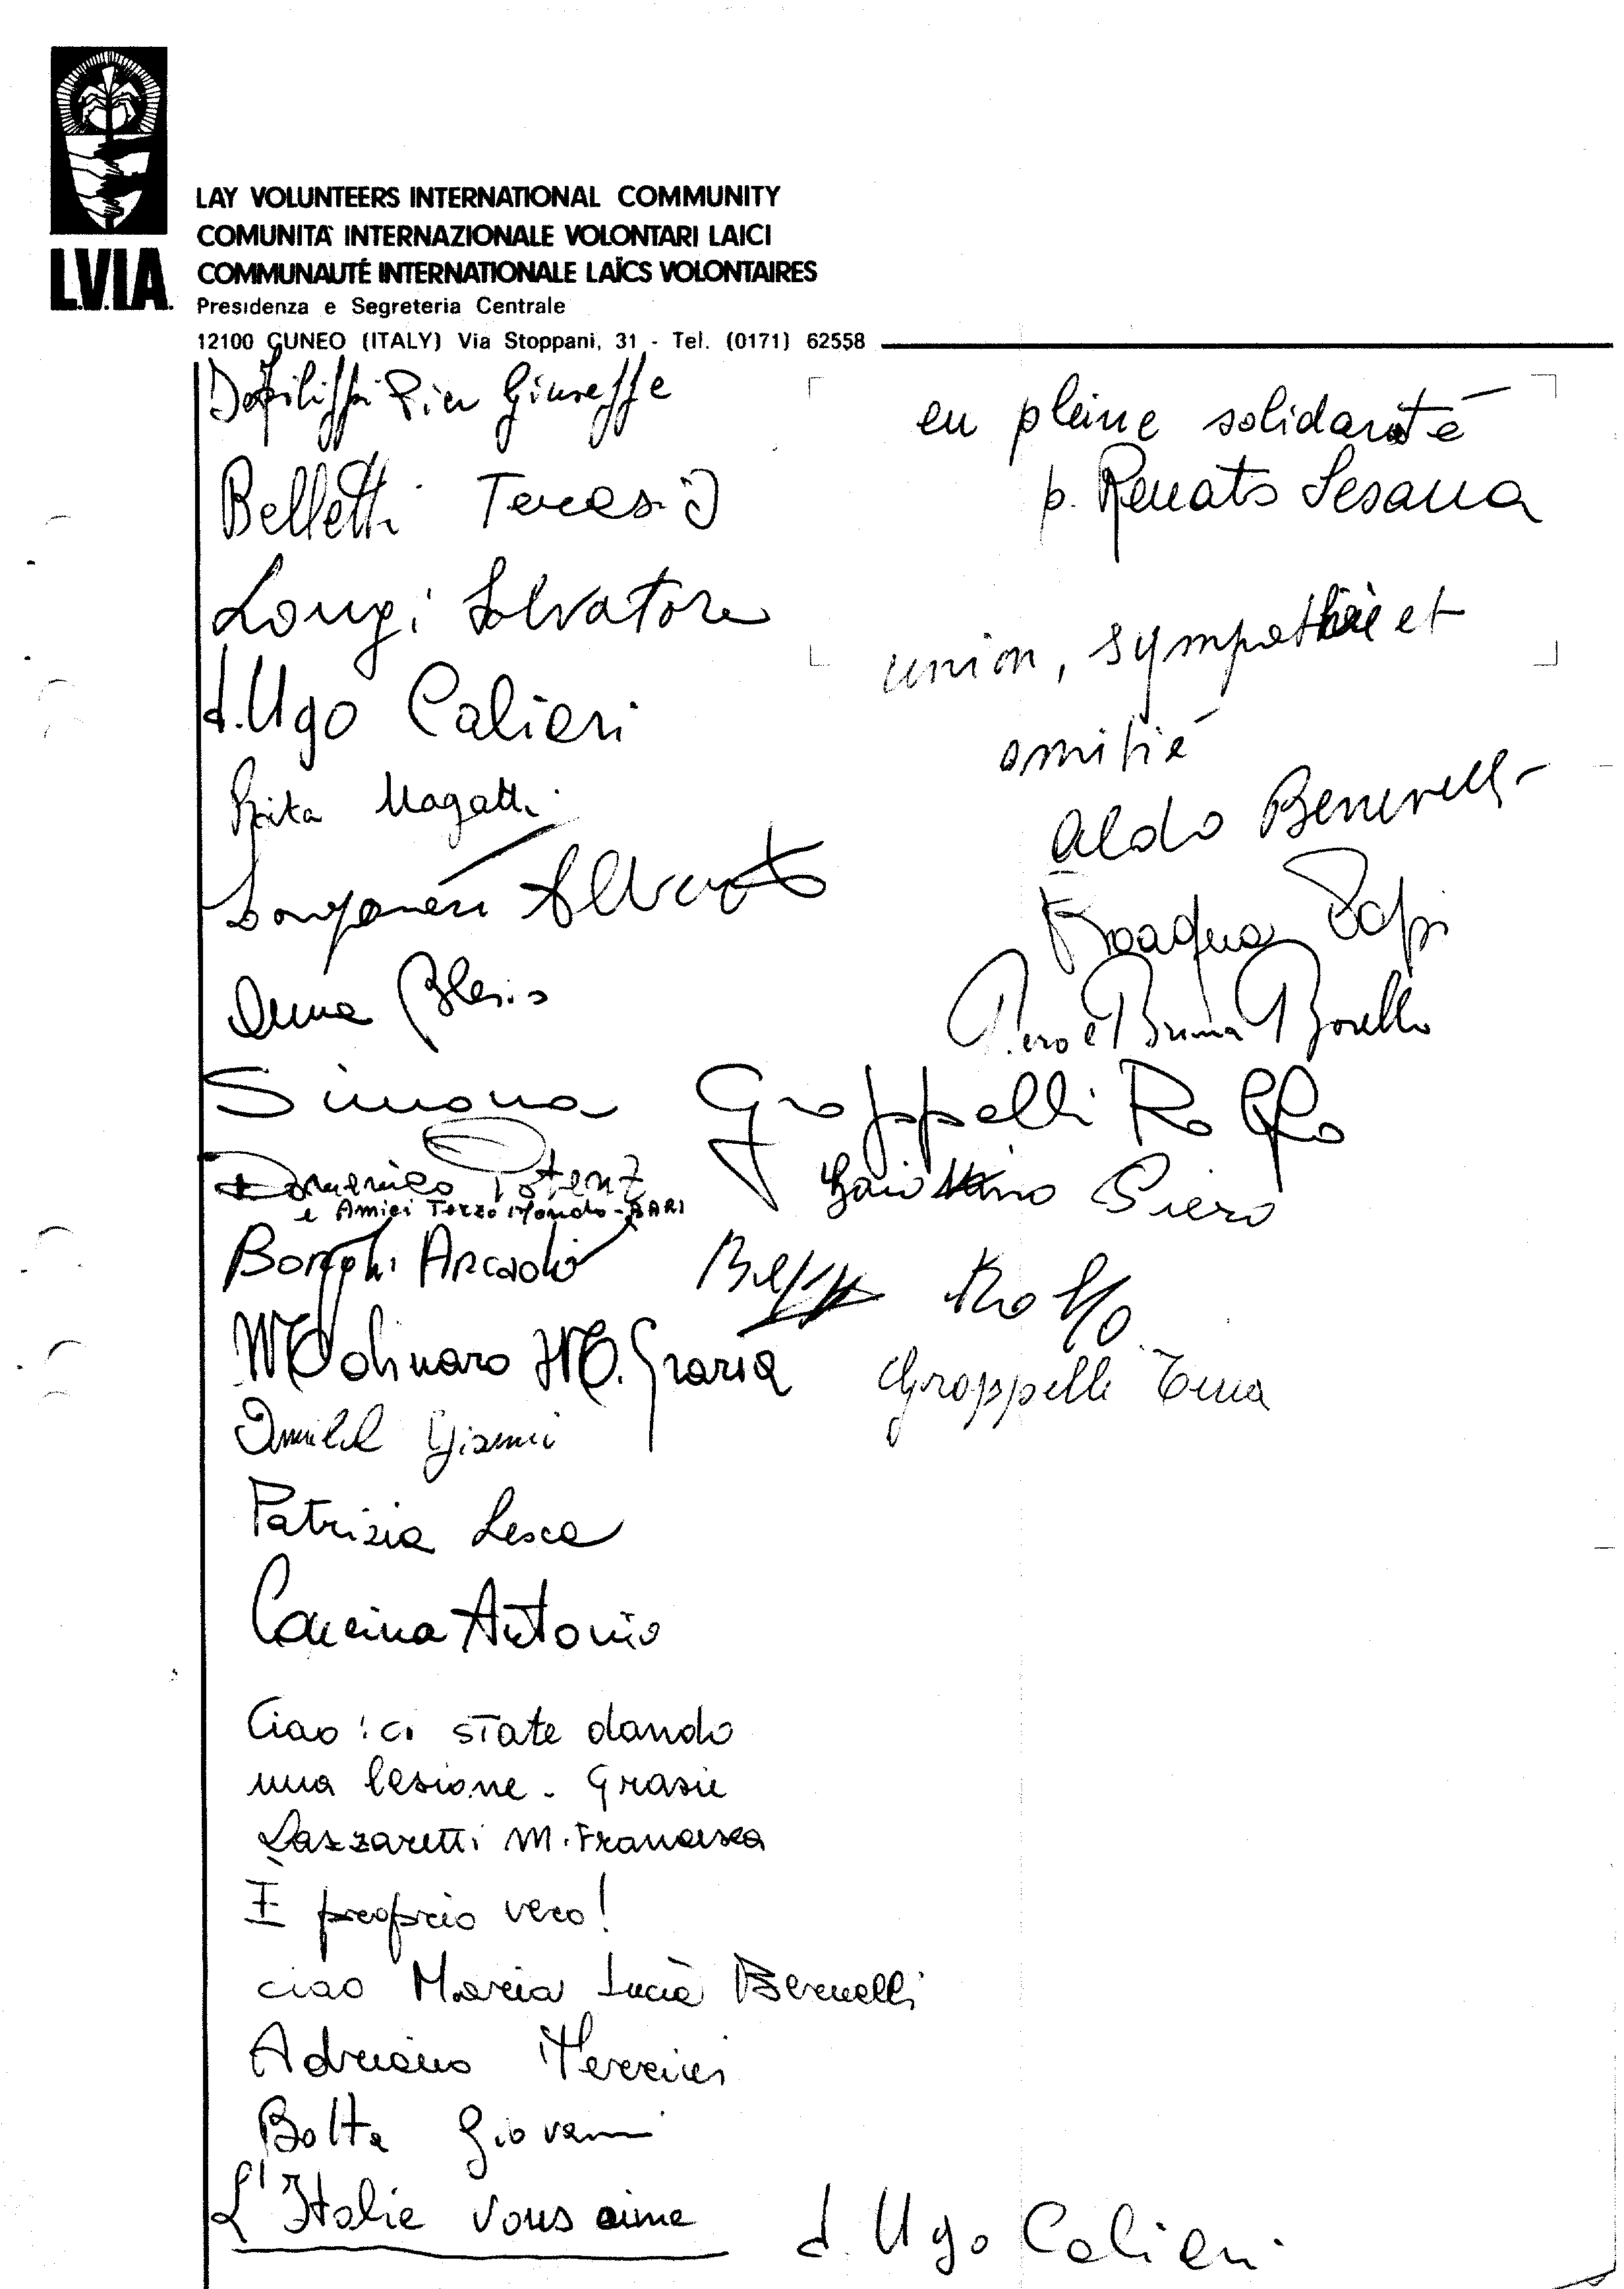 LAY VOLUNTEERS INTERNATIONAL COMMUNITY
COMUNITA' INTERNAZIONALE VOLONTARI LAICI
COMMUNAUTÉ INTERNATIONALE LAÏCS VOLONTAIRES
L.V.I.A.
Presidenza e Segreteria Centrale
12100 CUNEO (ITALY) Via Stoppani, 31 - Tel. (0171) 62558
Pier Giuseppe
Belletti
Longi Salvatore
d. Ugo Calieri
Rita Magatti
Alberto
Anna
Simona
Domenico Potenz
e Amici Terzo Mondo - BARI
Borghi Arcadio
Molinaro M. Grazia
Gianni
Patrizia Lesca
Antonio
Ciao! ci state dando
una lezione. Grazie
Lazzaretti M. Francesca
È proprio vero!
ciao Maria Lucia
Adriano
Botta Giovanni
L'Italie vous aime
d. Ugo Calieri
en pleine solidarité
p. Renato Sesana
union, sympathie et
amitié
Aldo Benevelli
Piero e Bruna Borello
Groppelli Rolfo
Piero
Groppelli